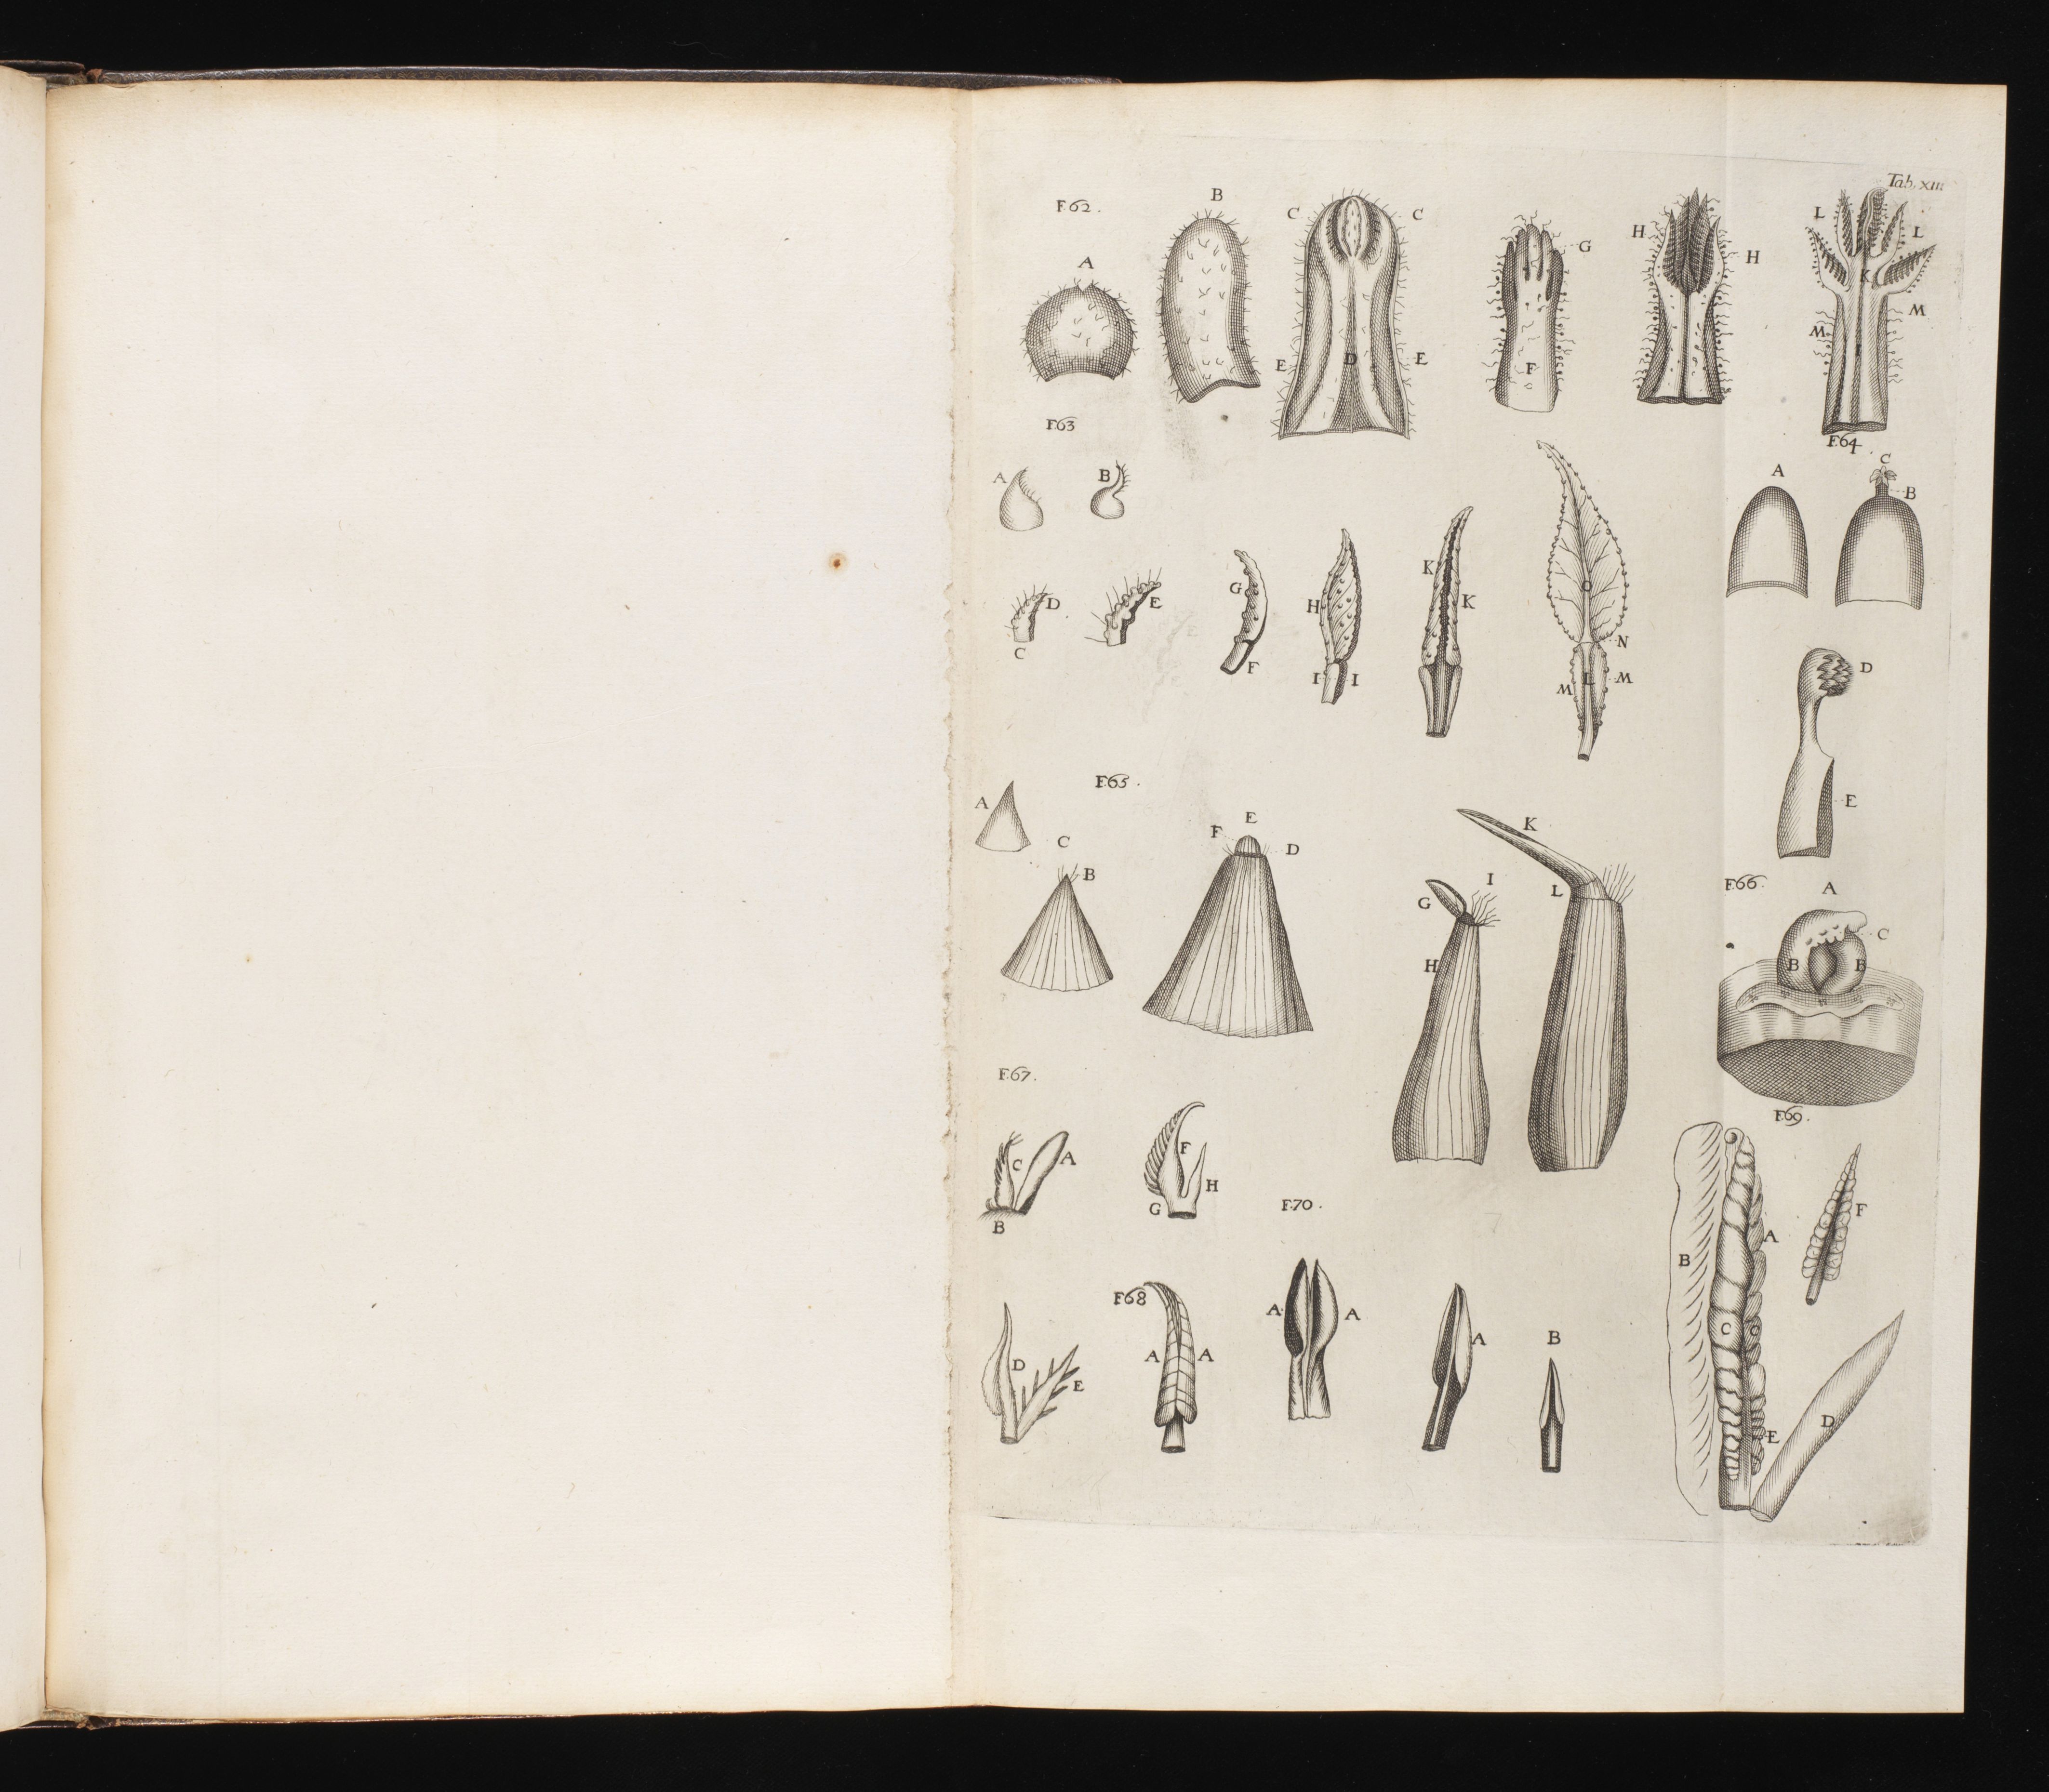 Tab. XIII
F.62.
A
B
C C
D
E E
F
G
H H
I
K
L L
M M
F.63
A
B
C
D
E
F
G
H
I I
K K
L
M M
N
O
F.64.
A
B
C
D
E
F.65.
A
B
C
D
E
F
G
H
I
K
L
F.66.
A
B B
C
F.67.
A
B
C
D
E
F
G
H
F.68
A A
F.69.
A
B
C C
D
E
F
F.70.
A A
A
B